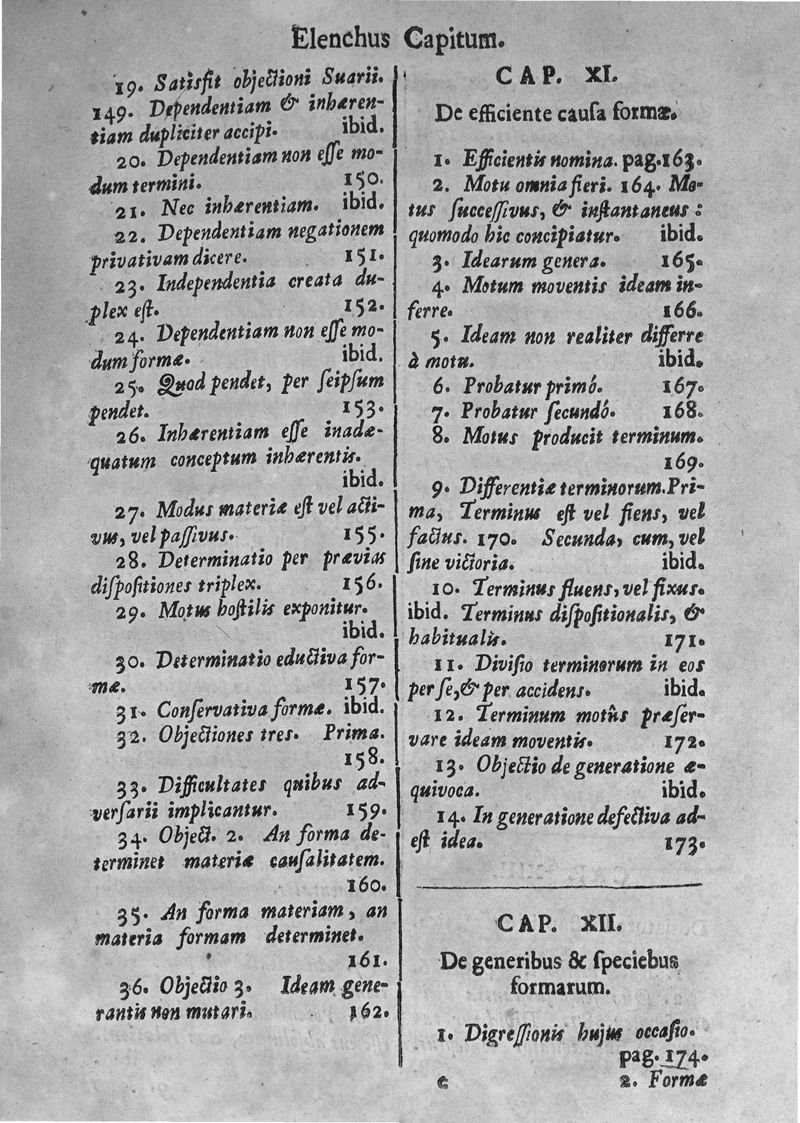 Elenchus Capitum.
19. Satisfit objectioni Suarii.
149. Dependentiam & inhæren-
tiam dupliciter accipi. ibid.
20. Dependentiam non eſſe mo-
dum termini. 150.
21. Nec inhærentiam. ibid.
22. Dependentiam negationem
privativam dicere. 151.
23. Independentia creata du-
plex eſt. 152.
24. Dependentiam non eſſe mo-
dum formæ. ibid.
25. Quod pendet, per ſeipſum
pendet. 153.
26. Inhærentiam eſſe inadæ-
quatum conceptum inhærentis.
ibid.
27. Modus materiæ eſt vel acti-
vus, vel paſſivus. 155.
28. Determinatio per prævias
diſpoſitiones triplex. 156.
29. Motus hoſtilis exponitur.
ibid.
30. Determinatio eductiva for-
mæ. 157.
31. Conſervativa formæ. ibid.
32. Objectiones tres. Prima.
158.
33. Difficultates quibus ad-
verſarii implicantur. 159.
34. Object. 2. An forma de-
terminet materiæ cauſalitatem.
160.
35. An forma materiam, an
materia formam determinet.
161.
36. Objectio 3. Ideam gene-
rantis non mutari. 162.
CAP. XI.
De efficiente cauſa formæ.
1. Efficientis nomina. pag.163.
2. Motu omnia fieri. 164. Mo-
tus ſucceſſivus, & inſtantaneus :
quomodo hic concipiatur. ibid.
3. Idearum genera. 165.
4. Motum moventis ideam in-
ferre. 166.
5. Ideam non realiter differre
à motu. ibid.
6. Probatur primó. 167.
7. Probatur ſecundó. 168.
8. Motus producit terminum.
169.
9. Differentiæ terminorum. Pri-
ma, Terminus eſt vel fiens, vel
factus. 170. Secunda, cum, vel
ſine victoria. ibid.
10. Terminus fluens, vel fixus.
ibid. Terminus diſpoſitionalis, &
habitualis. 171.
11. Diviſio terminorum in eos
per ſe, & per accidens. ibid.
12. Terminum motûs præſer-
vare ideam moventis. 172.
13. Objectio de generatione æ-
quivoca. ibid.
14. In generatione defectiva ad-
eſt idea. 173.
CAP. XII.
De generibus & ſpeciebus
formarum.
1. Digreſſionis hujus occaſio.
pag. 174.
e 2. Formæ